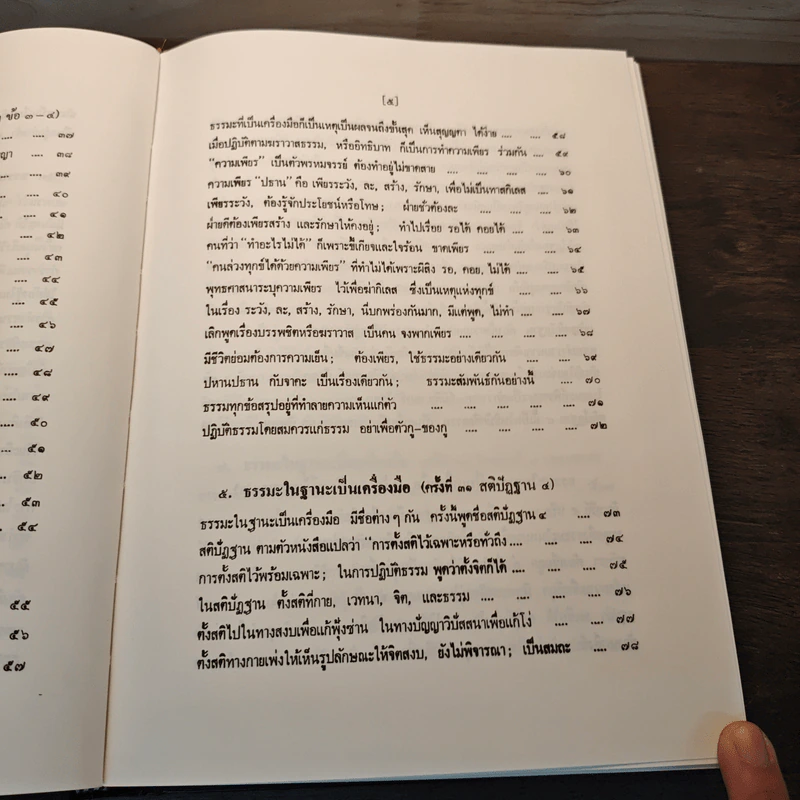 ข้อ ๓ – ๔)
.... .... ๓๗
ญา .... .... ๓๘
.... .... ๓๙
.... .... ๔๐
.... .... ๔๑
.... .... ๔๒
.... .... ๔๓
.... .... ๔๔
.... .... ๔๕
.... .... ๔๖
.... .... ๔๗
.... .... ๔๘
.... .... ๔๙
.... .... ๕๐
.... .... ๕๑
.... .... ๕๒
.... .... ๕๓
.... .... ๕๔
.... .... ๕๕
.... .... ๕๖
.... .... ๕๗
[๕]
ธรรมะที่เป็นเครื่องมือก็เป็นเหตุเป็นผลจนถึงขั้นสุด เห็นสุญญตา ได้ง่าย .... .... ๕๘
เมื่อปฏิบัติตามฆราวาสธรรม, หรืออิทธิบาท ก็เป็นการทำความเพียร ร่วมกัน .... ๕๙
"ความเพียร" เป็นตัวพรหมจรรย์ ต้องทำอยู่ไม่ขาดสาย .... .... .... .... ๖๐
ความเพียร "ปธาน" คือ เพียรระวัง, ละ, สร้าง, รักษา, เพื่อไม่เป็นทาสกิเลส .... ๖๑
เพียรระวัง, ต้องรู้จักประโยชน์หรือโทษ; ฝ่ายชั่วต้องละ .... .... .... ๖๒
ฝ่ายดีต้องเพียรสร้าง และรักษาให้คงอยู่; ทำไปเรื่อย รอได้ คอยได้ .... ๖๓
คนที่ว่า "ทำอะไรไม่ได้" ก็เพราะขี้เกียจและใจร้อน ขาดเพียร .... .... ๖๔
"คนล่วงทุกข์ได้ด้วยความเพียร" ที่ทำไม่ได้เพราะผีสิง รอ, คอย, ไม่ได้ .... ๖๕
พุทธศาสนาระบุความเพียร ไว้เพื่อฆ่ากิเลส ซึ่งเป็นเหตุแห่งทุกข์ .... ๖๖
ในเรื่อง ระวัง, ละ, สร้าง, รักษา, นี้บกพร่องกันมาก, มีแต่พูด, ไม่ทำ .... .... ๖๗
เลิกพูดเรื่องบรรพชิตหรือฆราวาส เป็นคน จงพากเพียร .... .... .... ๖๘
มีชีวิตย่อมต้องการความเย็น; ต้องเพียร, ใช้ธรรมะอย่างเดียวกัน .... .... ๖๙
ปหานปธาน กับจาคะ เป็นเรื่องเดียวกัน; ธรรมะสัมพันธ์กันอย่างนี้ .... ๗๐
ธรรมทุกข้อสรุปอยู่ที่ทำลายความเห็นแก่ตัว .... .... .... .... ๗๑
ปฏิบัติธรรมโดยสมควรแก่ธรรม อย่าเพื่อตัวกู–ของกู .... .... .... .... ๗๒
๕. ธรรมะในฐานะเป็นเครื่องมือ (ครั้งที่ ๓๑ สติปัฏฐาน ๔)
ธรรมะในฐานะเป็นเครื่องมือ มีชื่อต่าง ๆ กัน ครั้งนี้พูดชื่อสติปัฏฐาน ๔ .... ๗๓
สติปัฏฐาน ตามตัวหนังสือแปลว่า "การตั้งสติไว้เฉพาะหรือทั่วถึง .... .... .... ๗๔
การตั้งสติไว้พร้อมเฉพาะ; ในการปฏิบัติธรรม พูดว่าตั้งจิตก็ได้ .... .... .... ๗๕
ในสติปัฏฐาน ตั้งสติที่กาย, เวทนา, จิต, และธรรม .... .... .... .... ๗๖
ตั้งสติไปในทางสงบเพื่อแก้ฟุ้งซ่าน ในทางปัญญาวิปัสสนาเพื่อแก้โง่ .... .... ๗๗
ตั้งสติทางกายเพ่งให้เห็นรูปลักษณะให้จิตสงบ, ยังไม่พิจารณา; เป็นสมถะ .... ๗๘